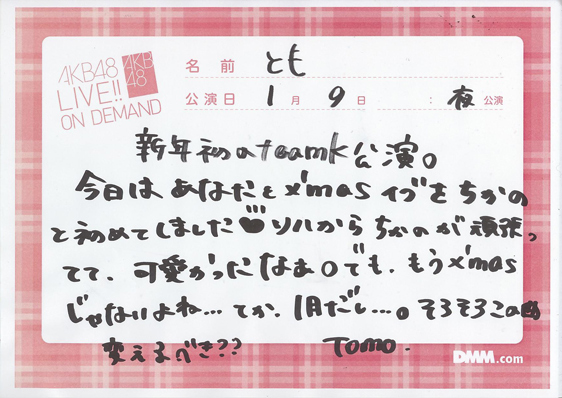 AKB48
LIVE!!
ON DEMAND
AKB
48
名前 とも
公演日 1月 9日 : 夜 公演
新年初のteamk公演。
今日はあなたとx'masイヴをちかの
と初めてしました♥ソハからちかのが頑張っ
てて、可愛かったなあ。でも、もうx'mas
じゃないよね…てか、1月だし…。そろそろこの曲
変えるべき??
Tomo.
DMM.com